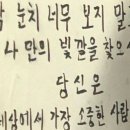 눈치 너무 보지 말
나만의 빛깔을 찾으
당신은
세상에서 가장 소중한 사람